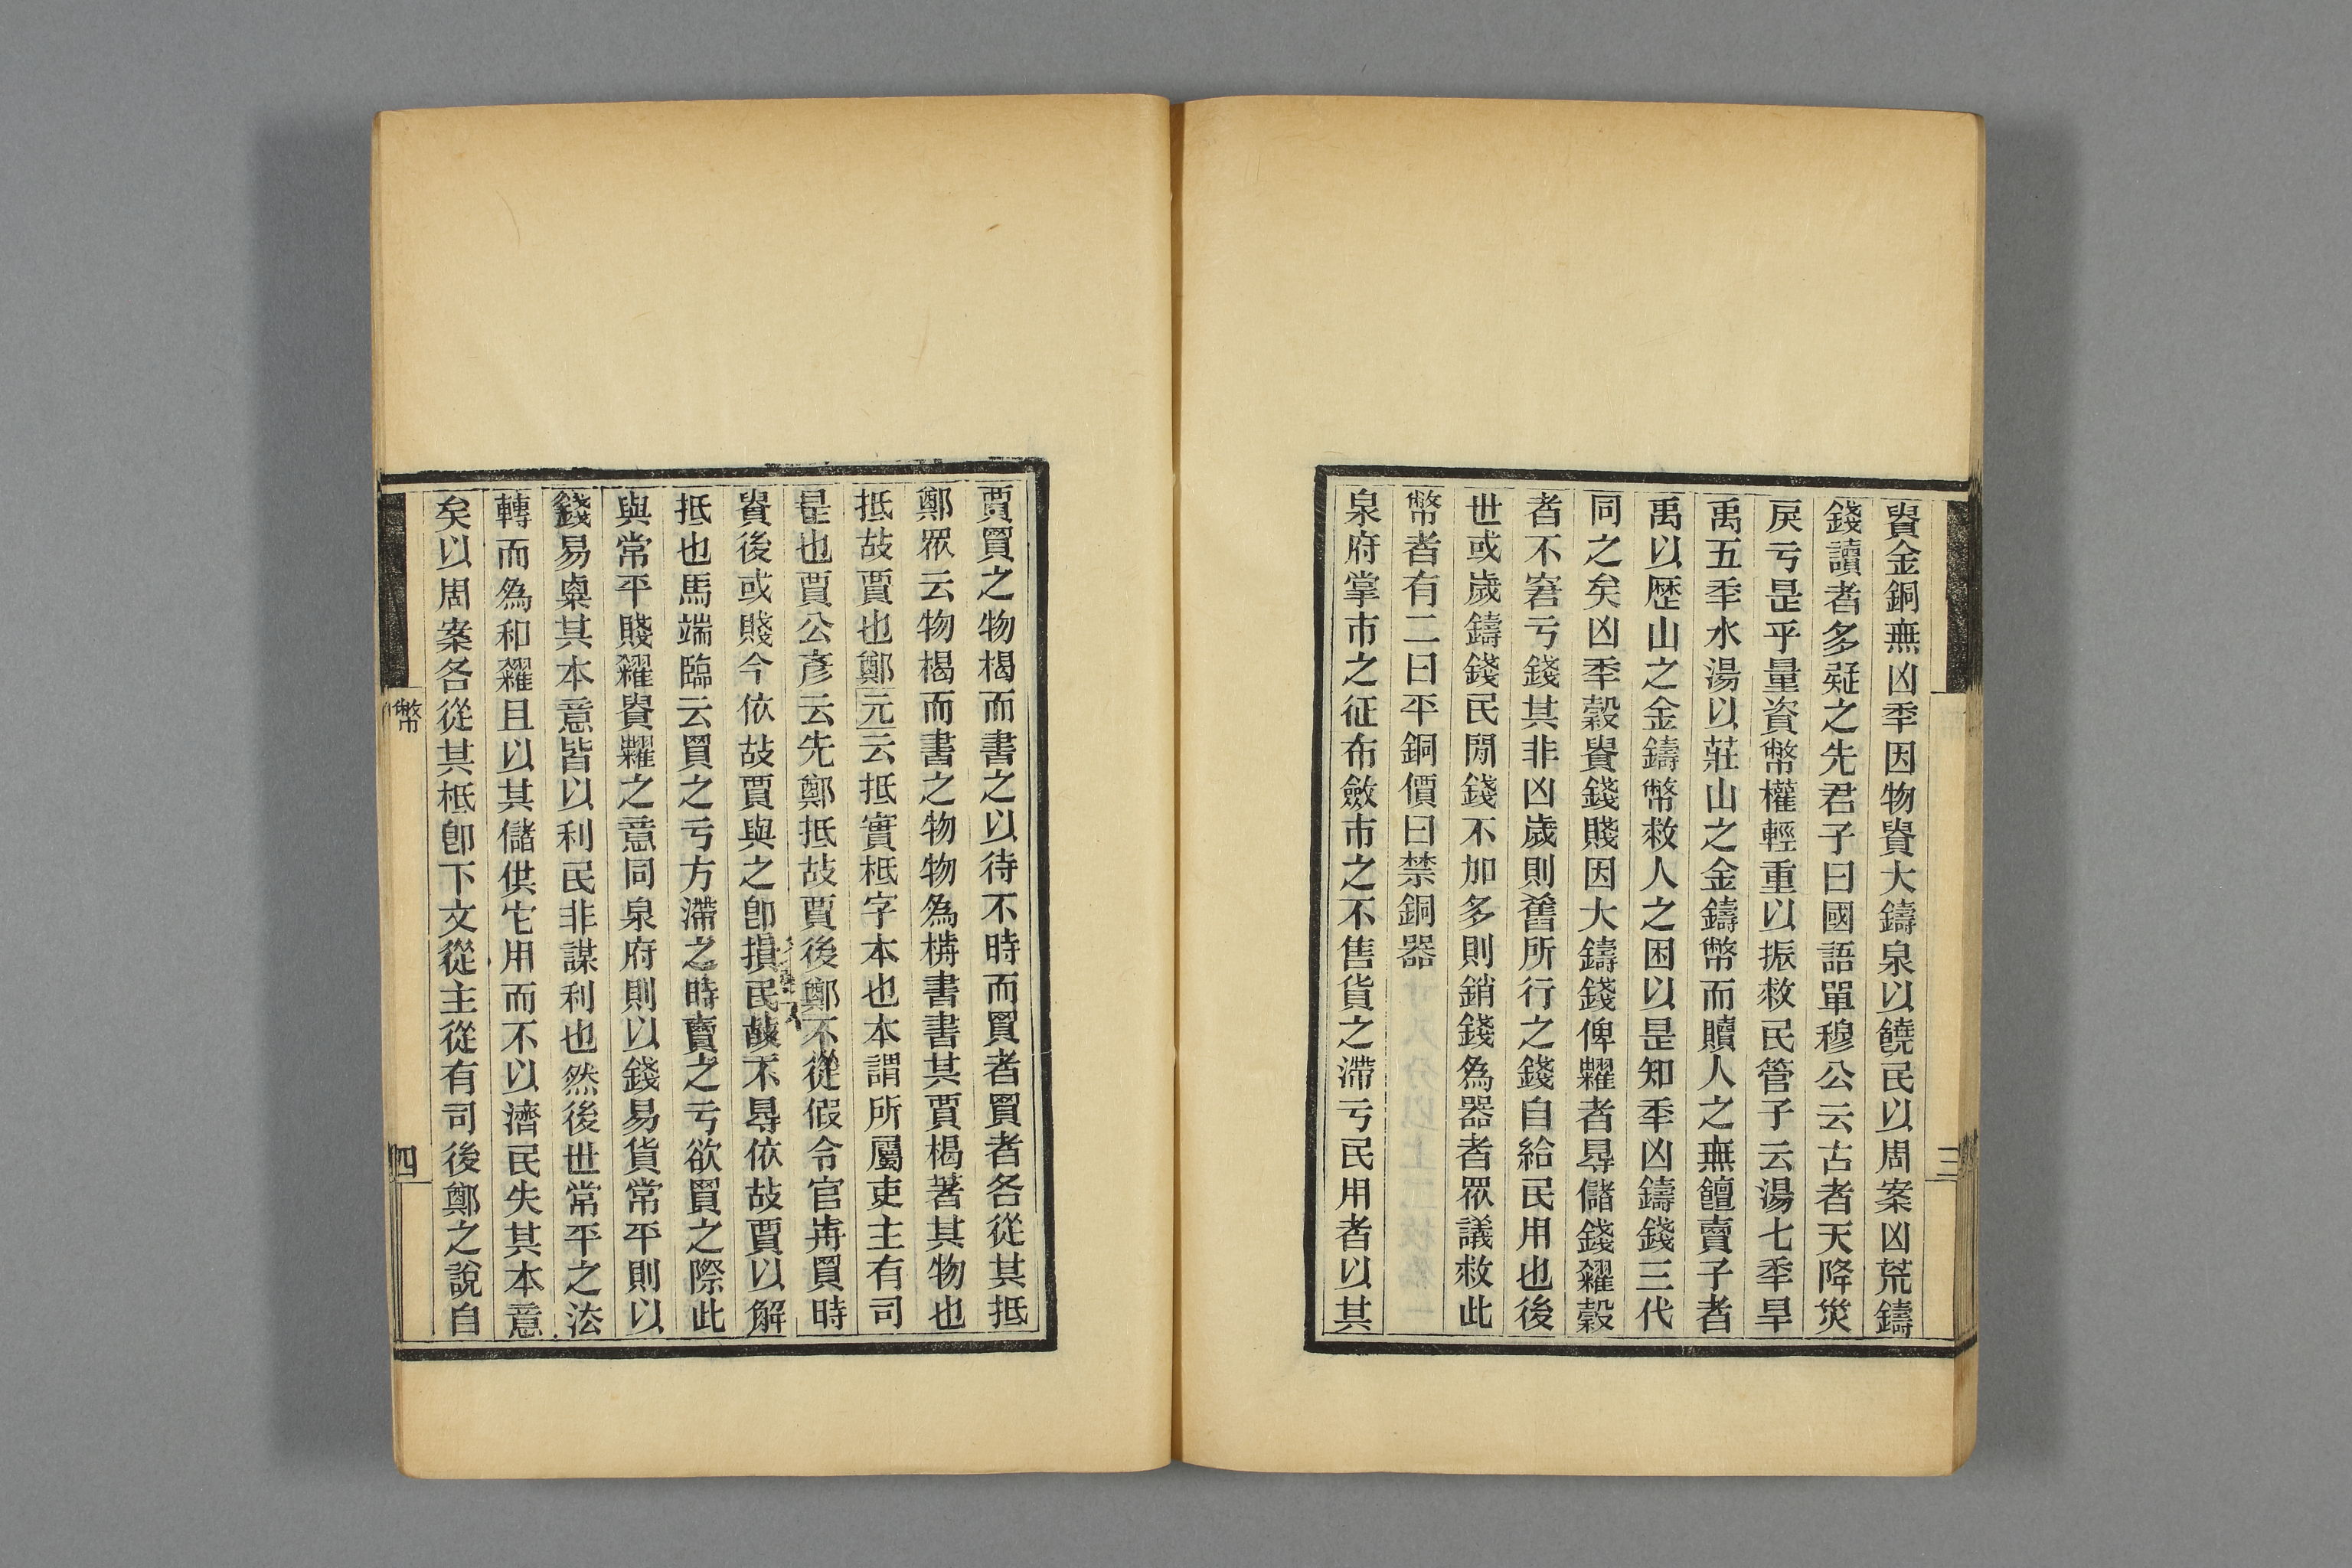 貴金銅無凶秊因物貴大鑄泉以饒民以周案凶荒鑄
錢讀者多疑之先君子曰國語單穆公云古者天降災
戾亏是乎量資幣權輕重以振救民管子云湯七秊旱
禹五秊水湯以莊山之金鑄幣而贖人之無饘賣子者
禹以歷山之金鑄幣救人之困以是知秊凶鑄錢三代
同之矣凶秊穀貴錢賤因大鑄錢俾糶者㝵儲錢糴穀
者不窘亏錢其非凶歲則舊所行之錢自給民用也後
世或歲鑄錢民閒錢不加多則銷錢為器者眾議救此
幣者有二曰平銅價曰禁銅器
泉府掌市之征布斂市之不售貨之滯亏民用者以其
三
賈買之物楬而書之以待不時而買者買者各從其抵
鄭眾云物楬而書之物物為楬書書其賈楬著其物也
抵故賈也鄭元云抵實柢字本也本謂所屬吏主有司
是也賈公彥云先鄭抵故賈後鄭不從假令官歬買時
貴後或賤今依故賈與之卽損民故不㝵依故賈以解
抵也馬端臨云買之亏方滯之時賣之亏欲買之際此
與常平賤糴貴糶之意同泉府則以錢易貨常平則以
錢易㮚其本意皆以利民非謀利也然後世常平之法
轉而為和糴且以其儲供它用而不以濟民失其本意
矣以周案各從其柢卽下文從主從有司後鄭之說自
幣
四